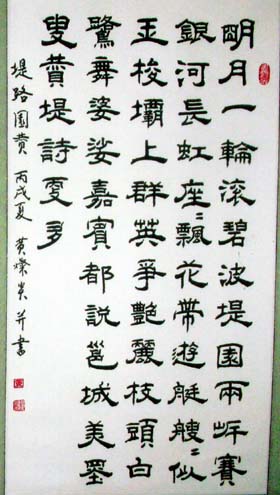 明月一輪滾碧波堤園兩岸賽
銀河長虹座〻飄花帶遊艇艘〻似
玉梭壩上群英爭艷麗枝頭白
鷺舞婆娑嘉賓都說邕城美墨
叟贊堤詩更多
堤路園贊 丙戌夏 黄燦 并書